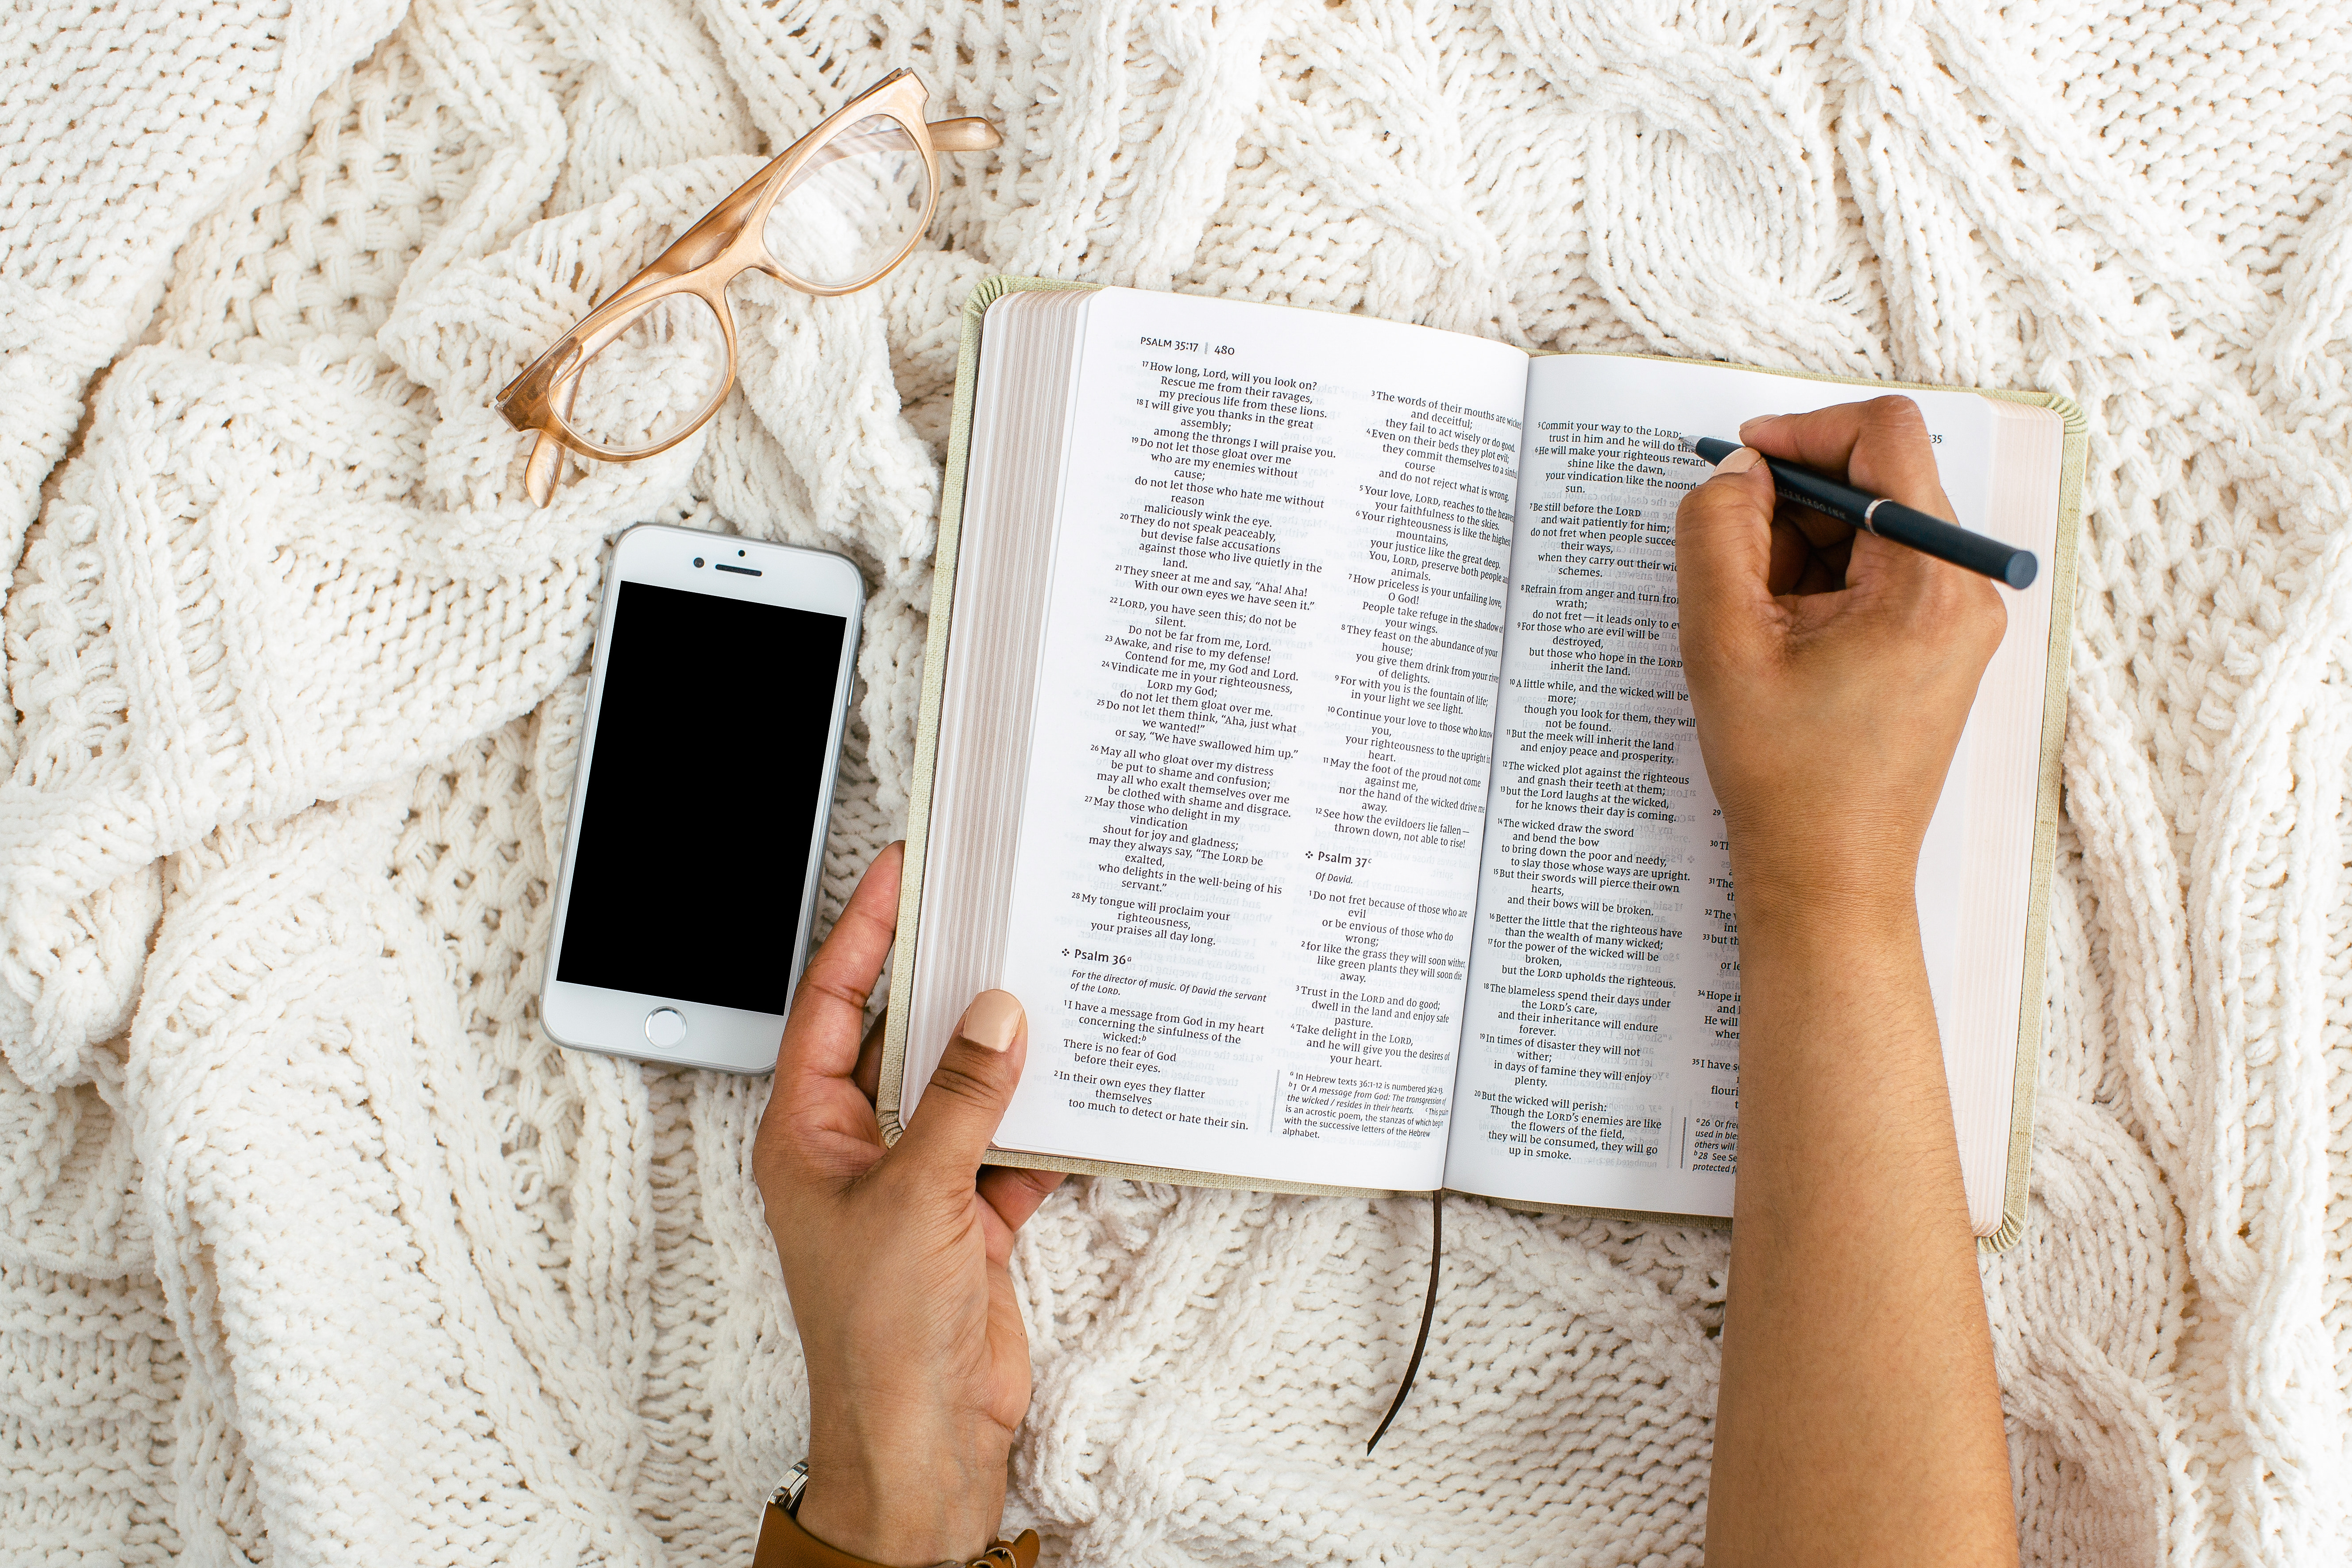 PSALM 35:17 | 480
17 How long, Lord, will you look on?
Rescue me from their ravages,
my precious life from these lions.
18 I will give you thanks in the great
assembly;
among the throngs I will praise you.
19 Do not let those gloat over me
who are my enemies without
cause;
do not let those who hate me without
reason
maliciously wink the eye.
20 They do not speak peaceably,
but devise false accusations
against those who live quietly in the
land.
21 They sneer at me and say, “Aha! Aha!
With our own eyes we have seen it.”
22 LORD, you have seen this; do not be
silent.
Do not be far from me, Lord.
23 Awake, and rise to my defense!
Contend for me, my God and Lord.
24 Vindicate me in your righteousness,
LORD my God;
do not let them gloat over me.
25 Do not let them think, “Aha, just what
we wanted!”
or say, “We have swallowed him up.”
26 May all who gloat over my distress
be put to shame and confusion;
may all who exalt themselves over me
be clothed with shame and disgrace.
27 May those who delight in my
vindication
shout for joy and gladness;
may they always say, “The LORD be
exalted,
who delights in the well-being of his
servant.”
28 My tongue will proclaim your
righteousness,
your praises all day long.
Psalm 36a
For the director of music. Of David the servant
of the LORD.
1 I have a message from God in my heart
concerning the sinfulness of the
wicked:b
There is no fear of God
before their eyes.
2 In their own eyes they flatter
themselves
too much to detect or hate their sin.
3 The words of their mouths are wicked
and deceitful;
they fail to act wisely or do good.
4 Even on their beds they plot evil;
they commit themselves to a sinful
course
and do not reject what is wrong.
5 Your love, LORD, reaches to the heavens,
your faithfulness to the skies.
6 Your righteousness is like the highest
mountains,
your justice like the great deep.
You, LORD, preserve both people and
animals.
7 How priceless is your unfailing love,
O God!
People take refuge in the shadow of
your wings.
8 They feast on the abundance of your
house;
you give them drink from your river
of delights.
9 For with you is the fountain of life;
in your light we see light.
10 Continue your love to those who know
you,
your righteousness to the upright in
heart.
11 May the foot of the proud not come
against me,
nor the hand of the wicked drive me
away.
12 See how the evildoers lie fallen—
thrown down, not able to rise!
Psalm 37c
Of David.
1 Do not fret because of those who are
evil
or be envious of those who do
wrong;
2 for like the grass they will soon wither,
like green plants they will soon die
away.
3 Trust in the LORD and do good;
dwell in the land and enjoy safe
pasture.
4 Take delight in the LORD,
and he will give you the desires of
your heart.
a In Hebrew texts 36:1-12 is numbered 36:2-13.
b 1 Or A message from God: The transgression of
the wicked / resides in their hearts. c This psalm
is an acrostic poem, the stanzas of which begin
with the successive letters of the Hebrew
alphabet.
:35
5 Commit your way to the LORD;
trust in him and he will do
6 He will make your righteous reward
shine like the dawn,
your vindication like the noonday
sun.
7 Be still before the LORD
and wait patiently for him;
do not fret when people succeed
their ways,
when they carry out their
schemes.
8 Refrain from anger and turn from
wrath;
do not fret—it leads only to
9 For those who are evil will be
destroyed,
but those who hope in the LORD
inherit the land.
10 A little while, and the wicked will be
more;
though you look for them, they will
not be found.
11 But the meek will inherit the land
and enjoy peace and prosperity.
12 The wicked plot against the righteous
and gnash their teeth at them;
13 but the Lord laughs at the wicked,
for he knows their day is coming.
14 The wicked draw the sword
and bend the bow
to bring down the poor and needy,
to slay those whose ways are upright.
15 But their swords will pierce their own
hearts,
and their bows will be broken.
16 Better the little that the righteous have
than the wealth of many wicked;
17 for the power of the wicked will be
broken,
but the LORD upholds the righteous.
18 The blameless spend their days under
the LORD’s care,
and their inheritance will endure
forever.
19 In times of disaster they will not
wither;
in days of famine they will enjoy
plenty.
20 But the wicked will perish:
Though the LORD’s enemies are like
the flowers of the field,
they will be consumed, they will go
up in smoke.
29
30
31 The
32 The
33 but
or
34 Hope
and
He will
when
35 I have
a 26 Or
used in
others will
b 28 See
protected